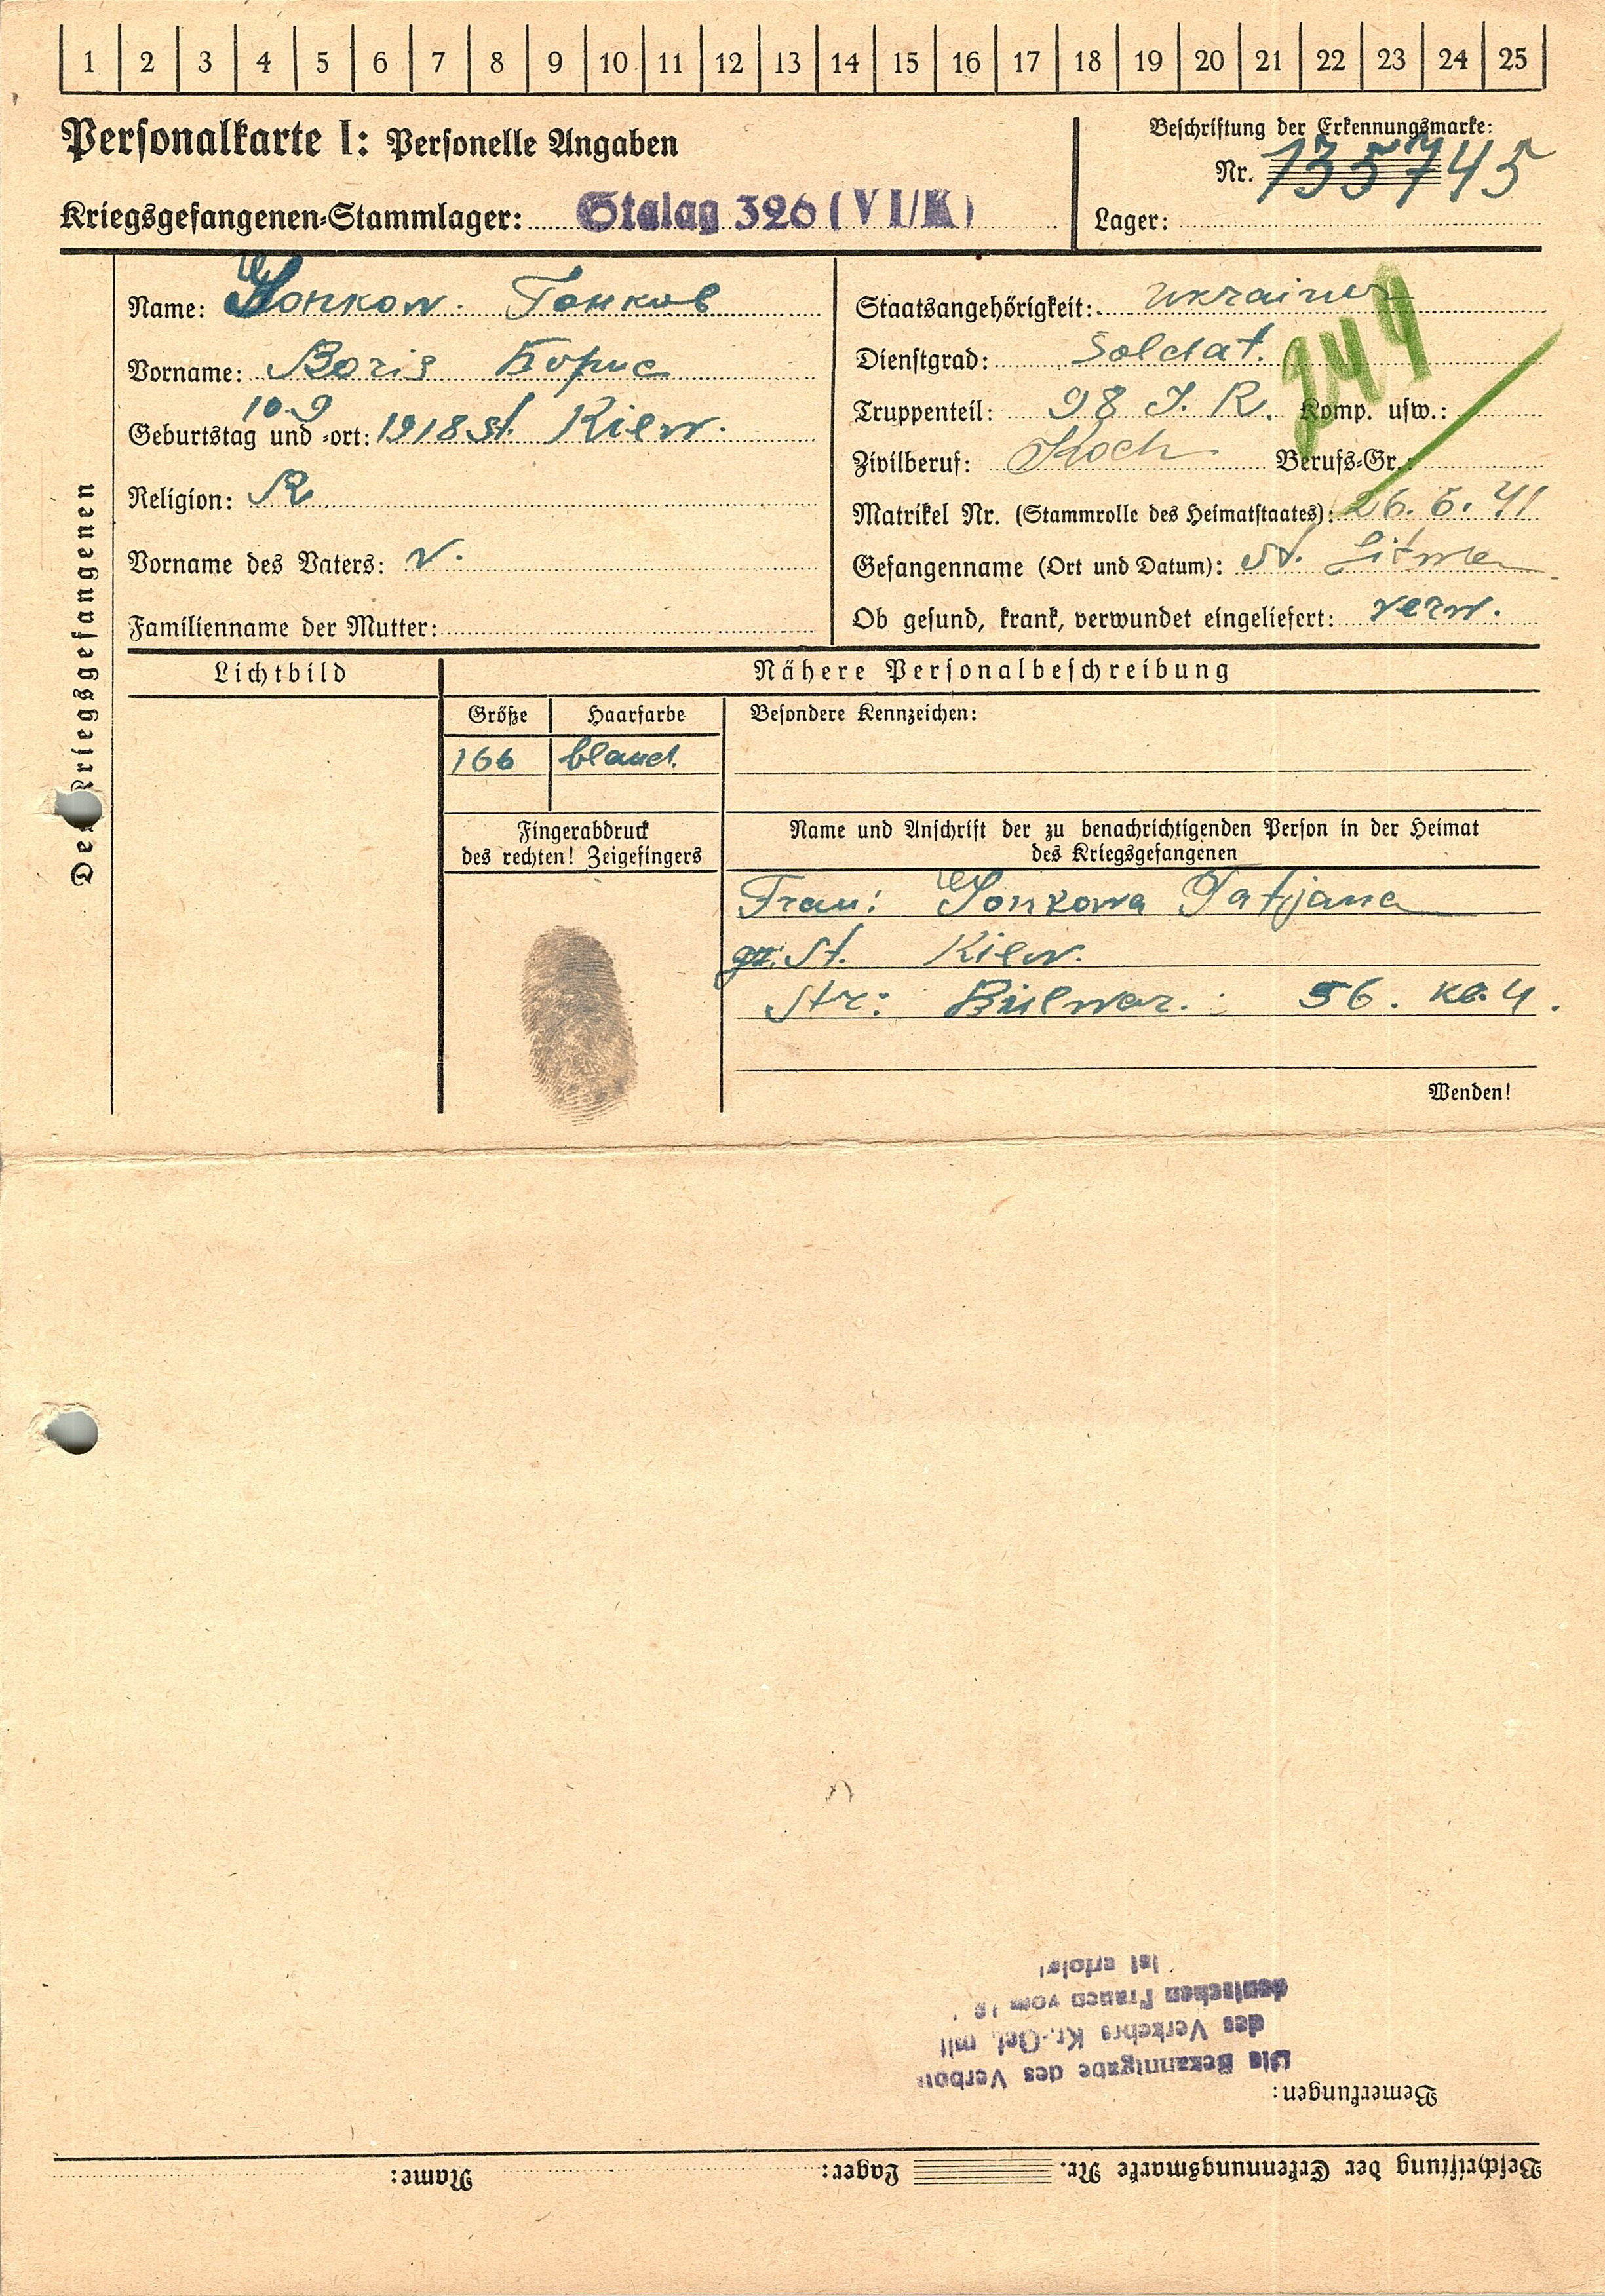 1 2 3 4 5 6 7 8 9 10 11 12 13 14 15 16 17 18 19 20 21 22 23 24 25
Personalkarte I: Personelle Angaben
Kriegsgefangenen-Stammlager: Stalag 326 (VI/K)
Beschriftung der Erkennungsmarke:
Nr. 135745
Lager:
Des Kriegsgefangenen
Name: Гонков
Vorname: Boris Борис
10.9
Geburtstag und -ort: 1918 St. Kiew.
Religion: R.
Vorname des Vaters: W.
Familienname der Mutter:
Staatsangehörigkeit: Ukrainer
Dienstgrad: Soldat.
Truppenteil: 98 J. R. Komp. usw.:
Zivilberuf: Koch Berufs-Gr.:
244
Matrikel Nr. (Stammrolle des Heimatstaates): 26. 6. 41
Gefangenname (Ort und Datum): St.
Ob gesund, krank, verwundet eingeliefert: verw.
Lichtbild
Nähere Personalbeschreibung
Größe Haarfarbe
166 bland.
Besondere Kennzeichen:
Fingerabdruck
des rechten! Zeigefingers
Name und Anschrift der zu benachrichtigenden Person in der Heimat
des Kriegsgefangenen
Frau: Tatjana
St. Kiew.
Str: Bulwar. 56. кв. 4.
Wenden!
Beschriftung der Erkennungsmarke Nr. Lager: Name:
Bemerkungen:
Die Bekanntgabe des Verbots
des Verkehrs Kr.-Gef. mit
deutschen Frauen vom
ist erfolgt